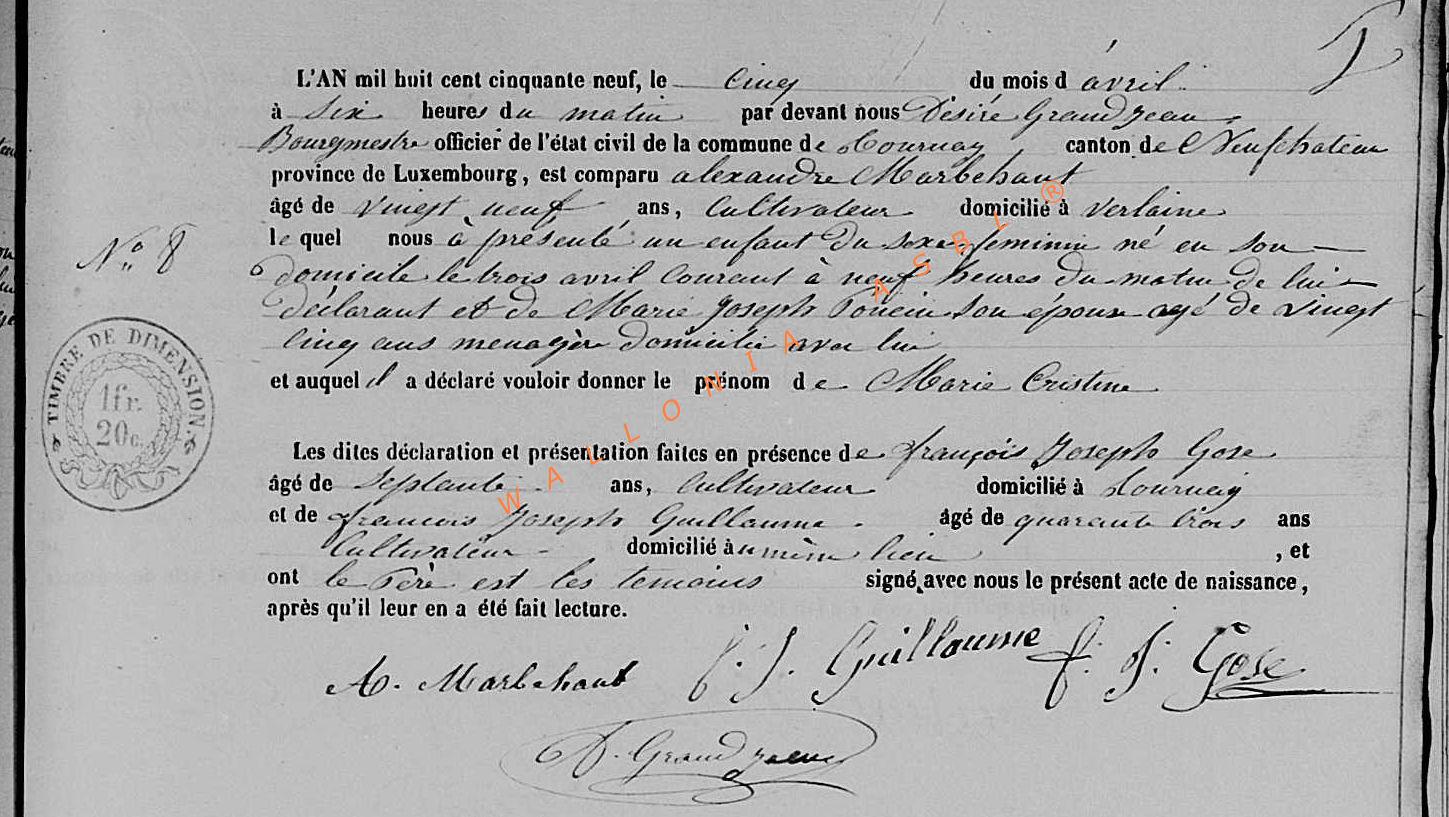 L'AN mil huit cent cinquante neuf, le cinq du mois d'avril
à six heures du matin par devant nous Désiré Grandjean,
Bourgmestre officier de l'état civil de la commune de Tournay, canton de Neufchateau
province de Luxembourg, est comparu alexandre Marbehant
âgé de vingt neuf ans, Cultivateur domicilié à Verlaine
le quel nous à présenté un enfant du sexe feminin né en son
N° 8
domicile le trois avril courant à neuf heures du matin de lui
déclarant et de Marie Joseph Poncin son épouse agé de vingt
cinq ans menagère domicilié avec lui
et auquel il a déclaré vouloir donner le prénom de Marie Cristine
TIMBRE DE DIMENSION.
1 fr.
20 c.
Les dites déclaration et présentation faites en présence de françois Joseph Gose
âgé de Septante ans, Cultivateur domicilié à Tournay
et de francois Joseph Guillaume. âgé de quarante trois ans
Cultivateur domicilié au mème lieu, et
ont le Père est les temoins signé avec nous le présent acte de naissance,
après qu'il leur en a été fait lecture.
A. Marbehant f. J. Guillaume f. J. Gose
D. Grandjean
WALLONIA ASBL ®